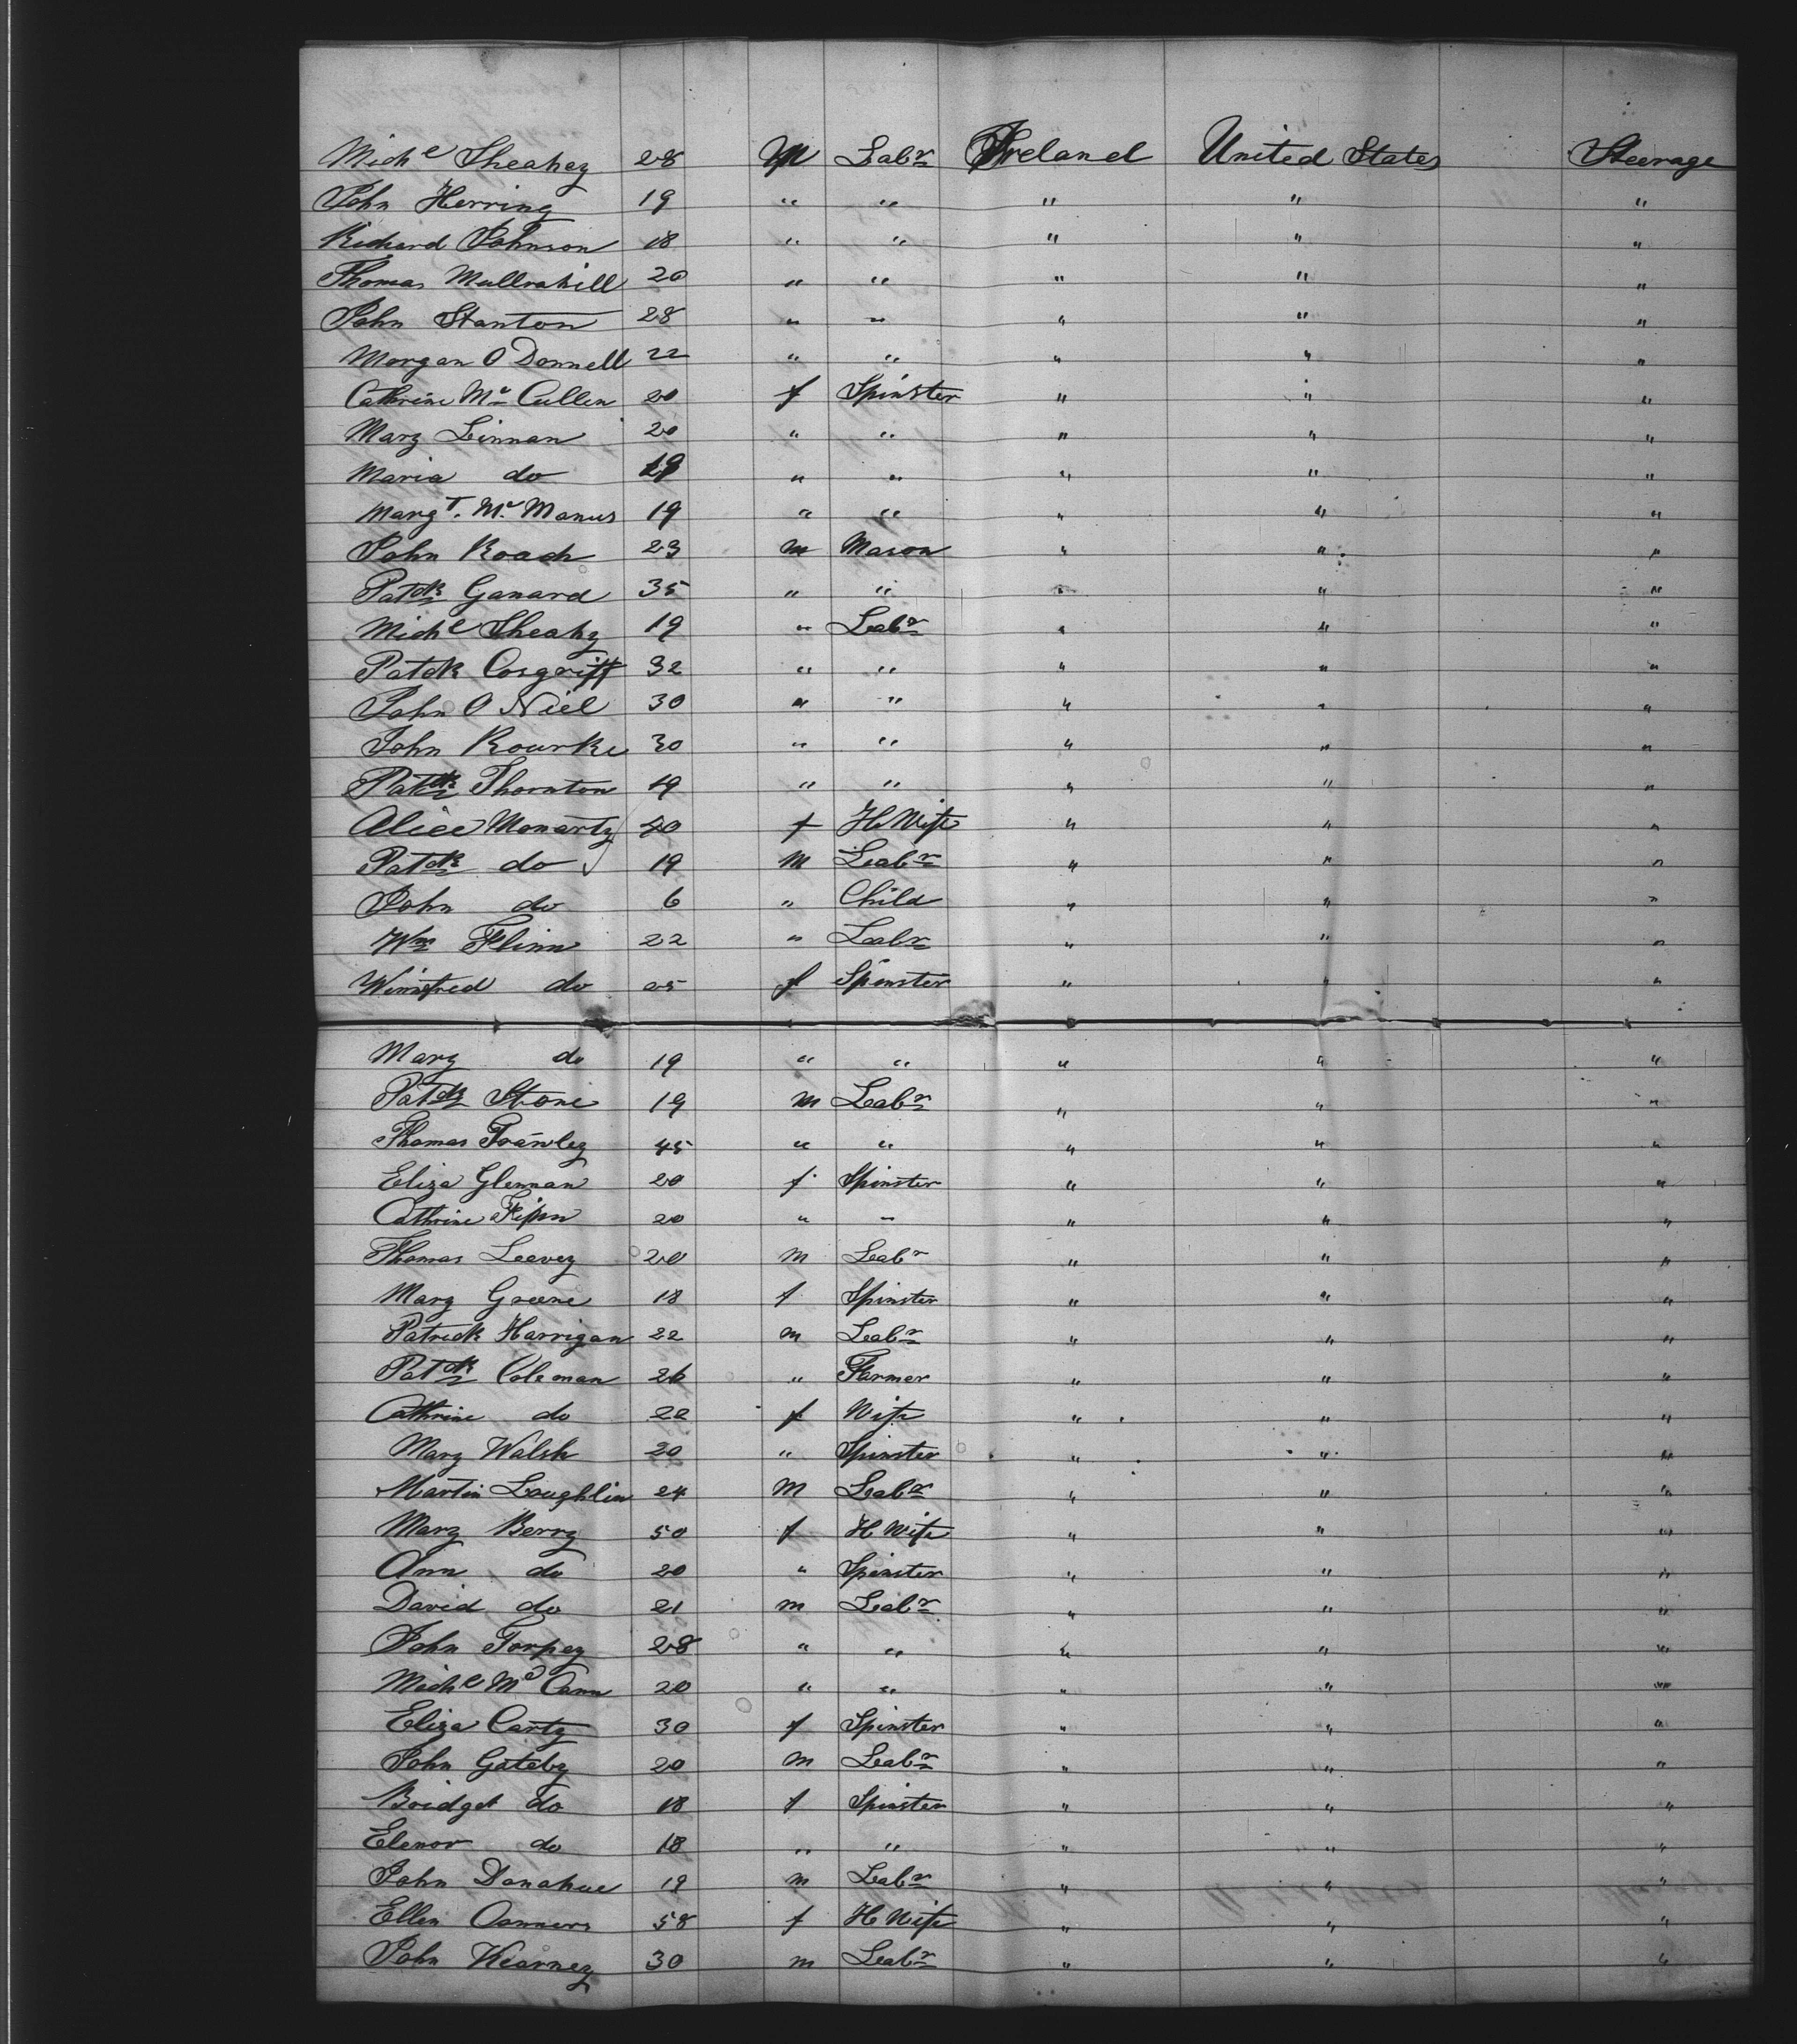 Mich<sup>l</sup> Sheahey 28 M Lab<sup>r</sup> Ireland United States Steerage
John Herring 19 " " " " "
Richard Johnson 18 " " " " "
Thomas Mullrahill 20 " " " " "
John Stanton 28 " " " " "
Morgan O Donnell 22 " " " " "
Cathrine Mc Cullen 20 f Spinster " " "
Mary Linnan 20 " " " " "
Maria do 19 " " " " "
Marg<sup>T</sup>. Mc Manus 19 " " " " "
John Roach 23 m Mason " " "
Pat<sup>ck</sup> Ganard 35 " " " " "
Mich<sup>l</sup> Sheahy 19 " Lab<sup>r</sup> " " "
Patck Cosgriff 32 " " " " "
John O Niel 30 " " " " "
John Rourke 30 " " " " "
Pat<sup>ck</sup> Thornton 19 " " " " "
Alice Monarty 40 f H Wife " " "
Pat<sup>ck</sup> do 19 M Lab<sup>r</sup> " " "
John do 6 " Child " " "
W<sup>m</sup> Flinn 22 " Lab<sup>r</sup> " " "
Winifred do 25 f Spinster " " "
Mary do 19 " " " " "
Pat<sup>ck</sup> Stone 19 m Lab<sup>r</sup> " " "
Thomas 45 " " " " "
Eliza Glennan 20 f Spinster " " "
Cathrine 20 " " " " "
Thomas Leavey 20 m Lab<sup>r</sup> " " "
Mary Greene 18 f Spinster " " "
Patrick Harrigan 22 m Lab<sup>r</sup> " " "
Pat<sup>ck</sup> Coleman 26 " Farmer " " "
Cathrine do 22 f Wife " " "
Mary Walsh 20 " Spinster " " "
Martin Loughlin 24 M Lab<sup>r</sup> " " "
Mary Berry 50 f H Wife " " "
Ann do 20 " Spinster " " "
David do 21 m Lab<sup>r</sup> " " "
John Torpey 28 " " " " "
Mich<sup>l</sup> Mc Cann 20 " " " " "
Eliza Carty 30 f Spinster " " "
John Gateby 20 m Lab<sup>r</sup> " " "
Bridget do 18 f Spinster " " "
Elenor do 18 " " " " "
John Donahue 19 m Lab<sup>r</sup> " " "
Ellen Conners 58 f H Wife " " "
John Kearney 30 m Lab<sup>r</sup> " " "